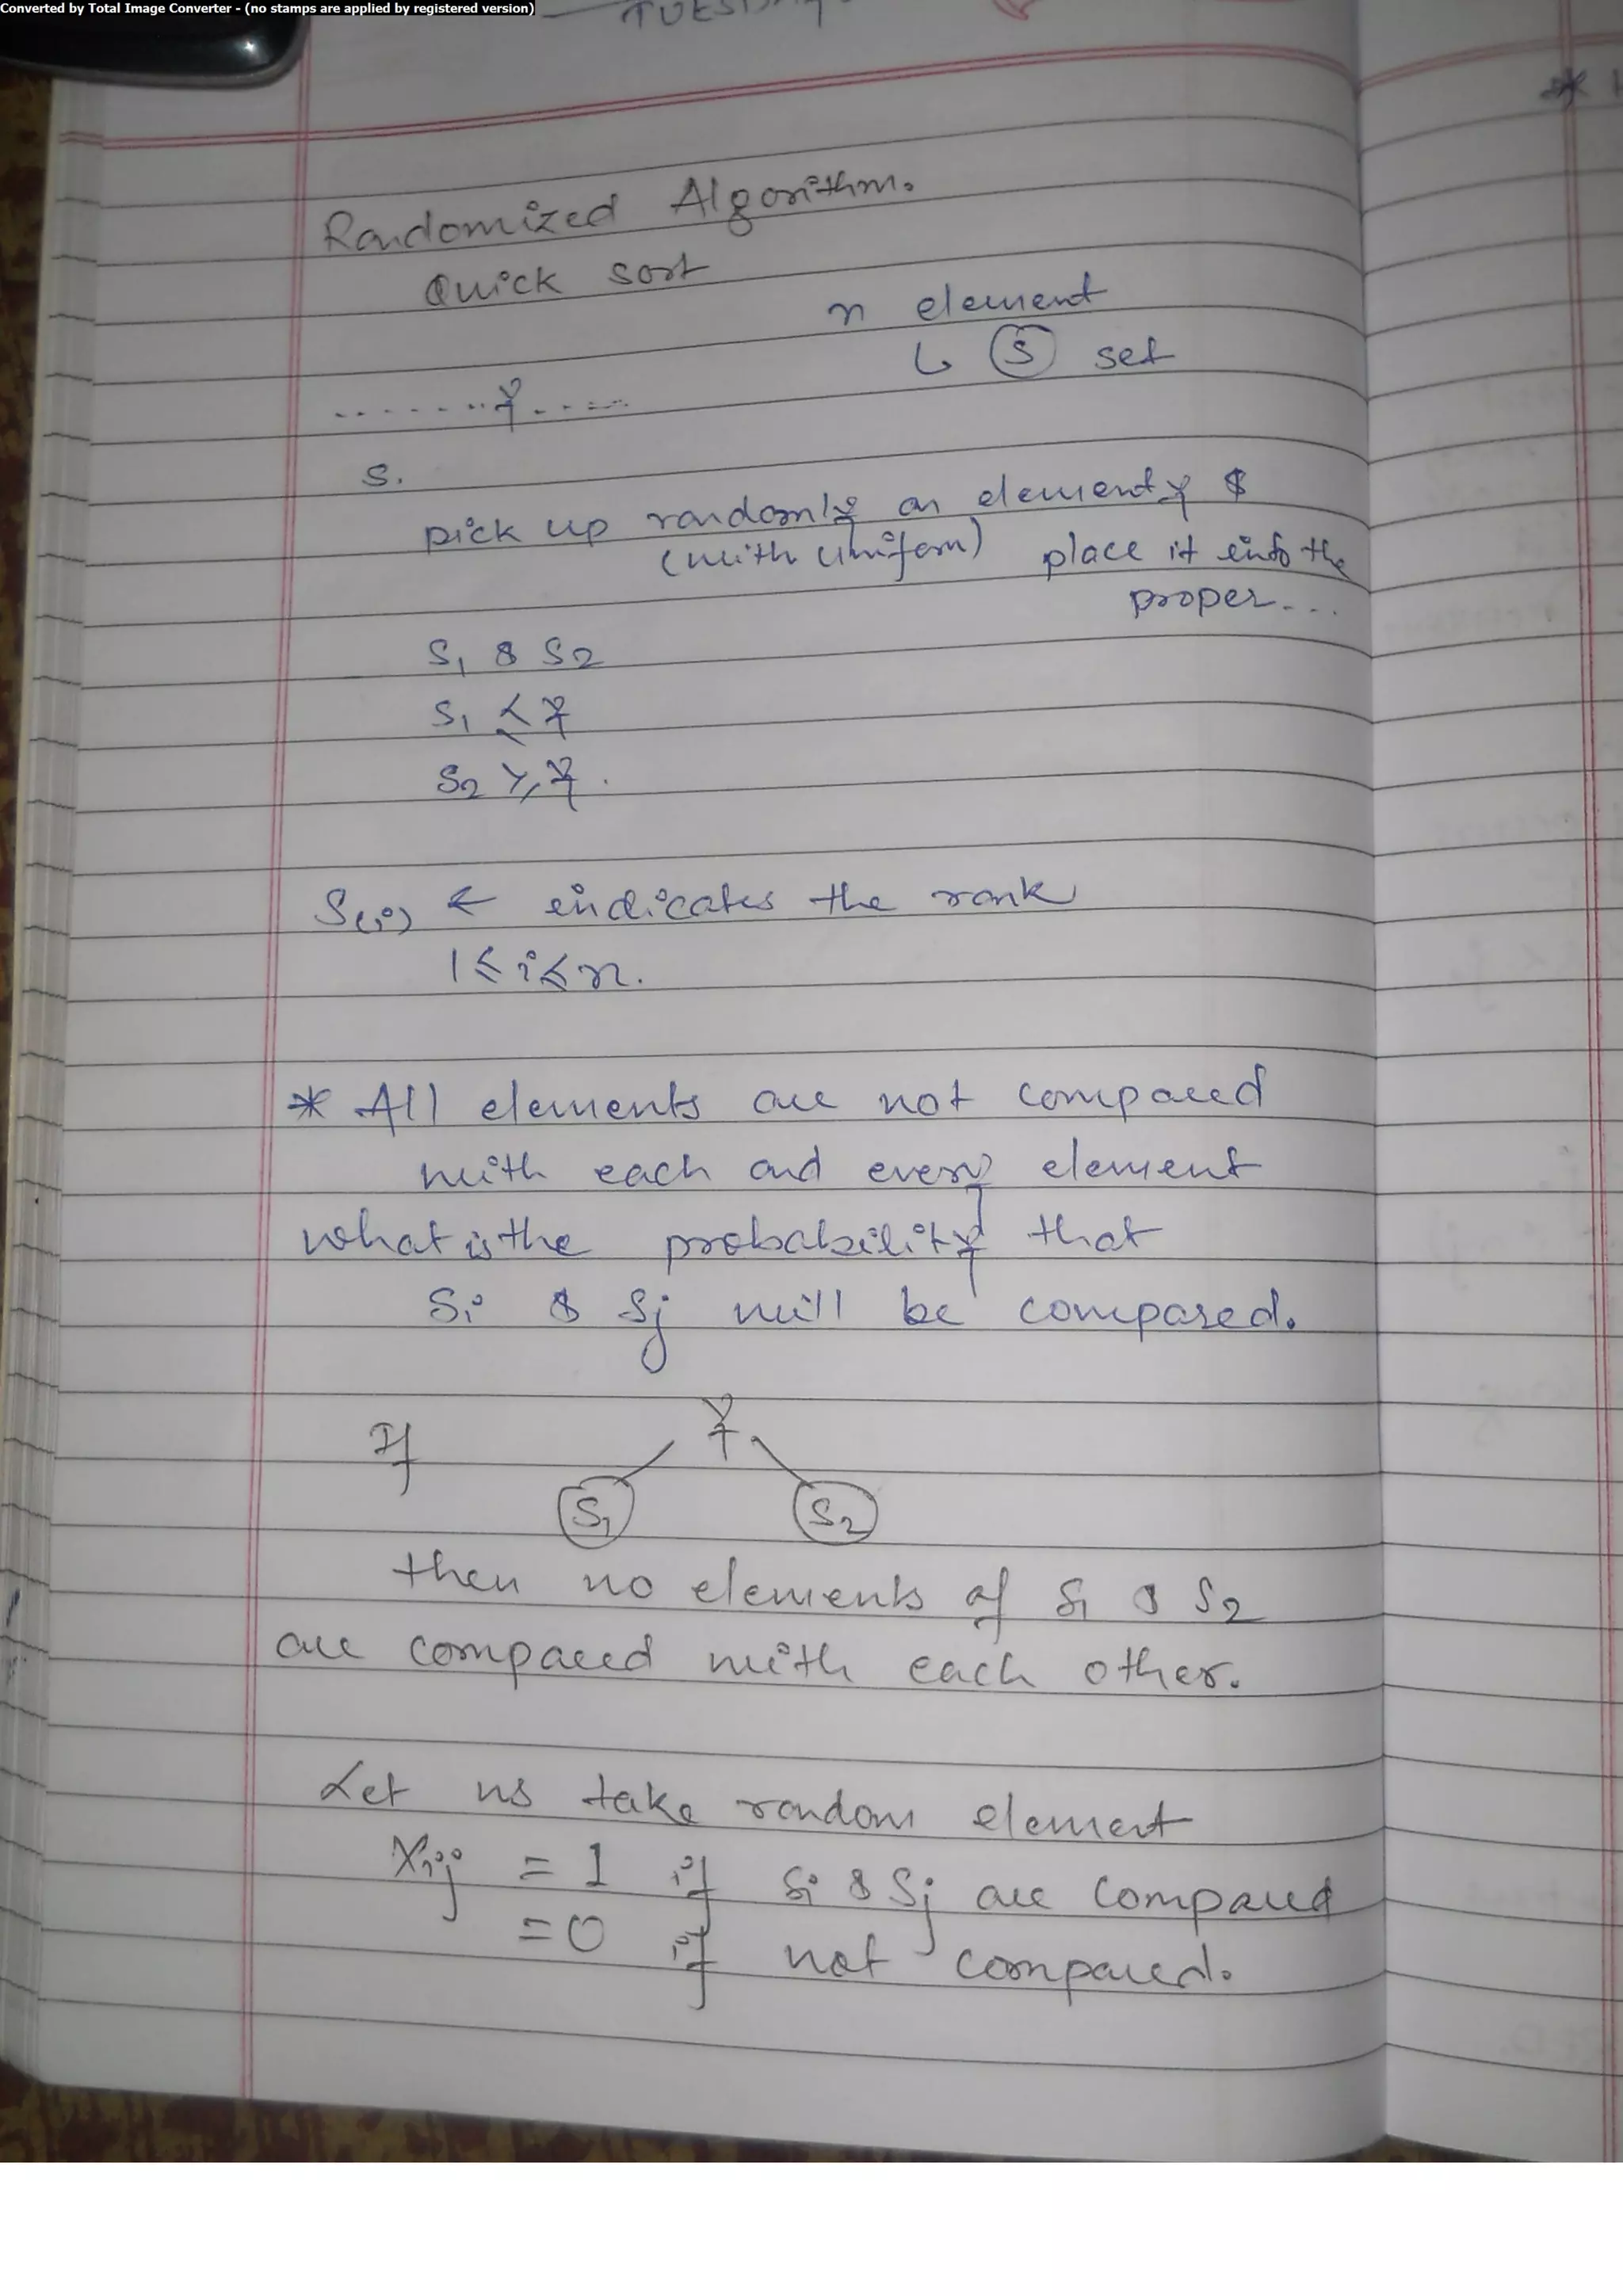 Converted by Total Image Converter - (no stamps are applied by registered version)
TUESDAY
Randomized Algorithm.
Quick sort
n element
↳ S set
. . . . . . . . y . . . . . .
S.
pick up randomly an element y &
(with uniform) place it into the
proper...
S1 & S2
S1 ≤ y
S2 ≥ y.
S(i) ← indicates the rank
1 ≤ i ≤ n.
* All elements are not compared
with each and every element
what is the probability that
Si & Sj will be compared.
If y
S1 S2
then no elements of S1 & S2
are compared with each other.
Let us take random element
Xij = 1 if Si & Sj are compared
= 0 if not compared.